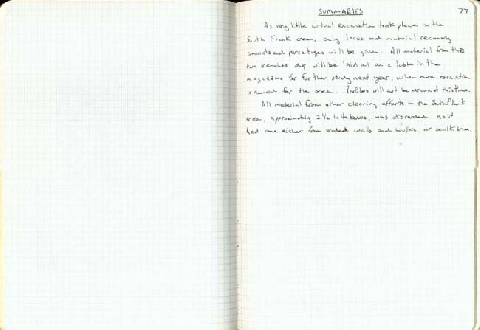 SUMMARIES 77
As very little actual excavation took place in the
South Flank area, only local and material recovery
amounts and percentages will be given. All material from this
two trenches dug will be laid out on a table in the
magazine for further study next year, when more excavation
is planned for the area. Profiles will not be
All material from other cleaning efforts in the South Flank
area, approximately 2½ kilo boxes, was discarded as it
had come either from robbed walls and